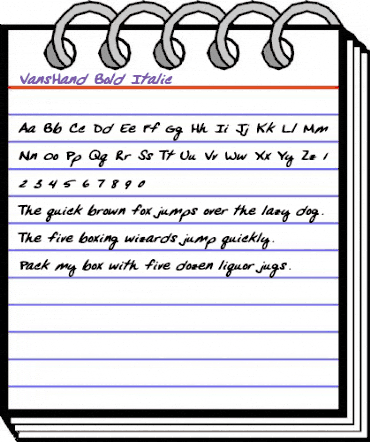 VansHand Bold Italic
Aa Bb Cc Dd Ee Ff Gg Hh Ii Jj Kk Ll Mm
Nn Oo Pp Qq Rr Ss Tt Uu Vv Ww Xx Yy Zz 1
2 3 4 5 6 7 8 9 0
The quick brown fox jumps over the lazy dog.
The five boxing wizards jump quickly.
Pack my box with five dozen liquor jugs.